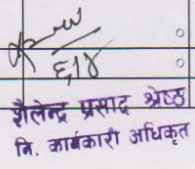 ६।४
शैलेन्द्र प्रसाद श्रेष्ठ
नि. कार्यकारी अधिकृत